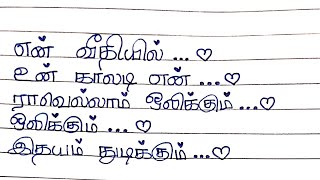 என் வீதியில் ... ♡
உன் காலடி என் ... ♡
ராவெல்லாம் ஒலிக்கும் ... ♡
ஒலிக்கும் ... ♡
இதயம் துடிக்கும் ... ♡